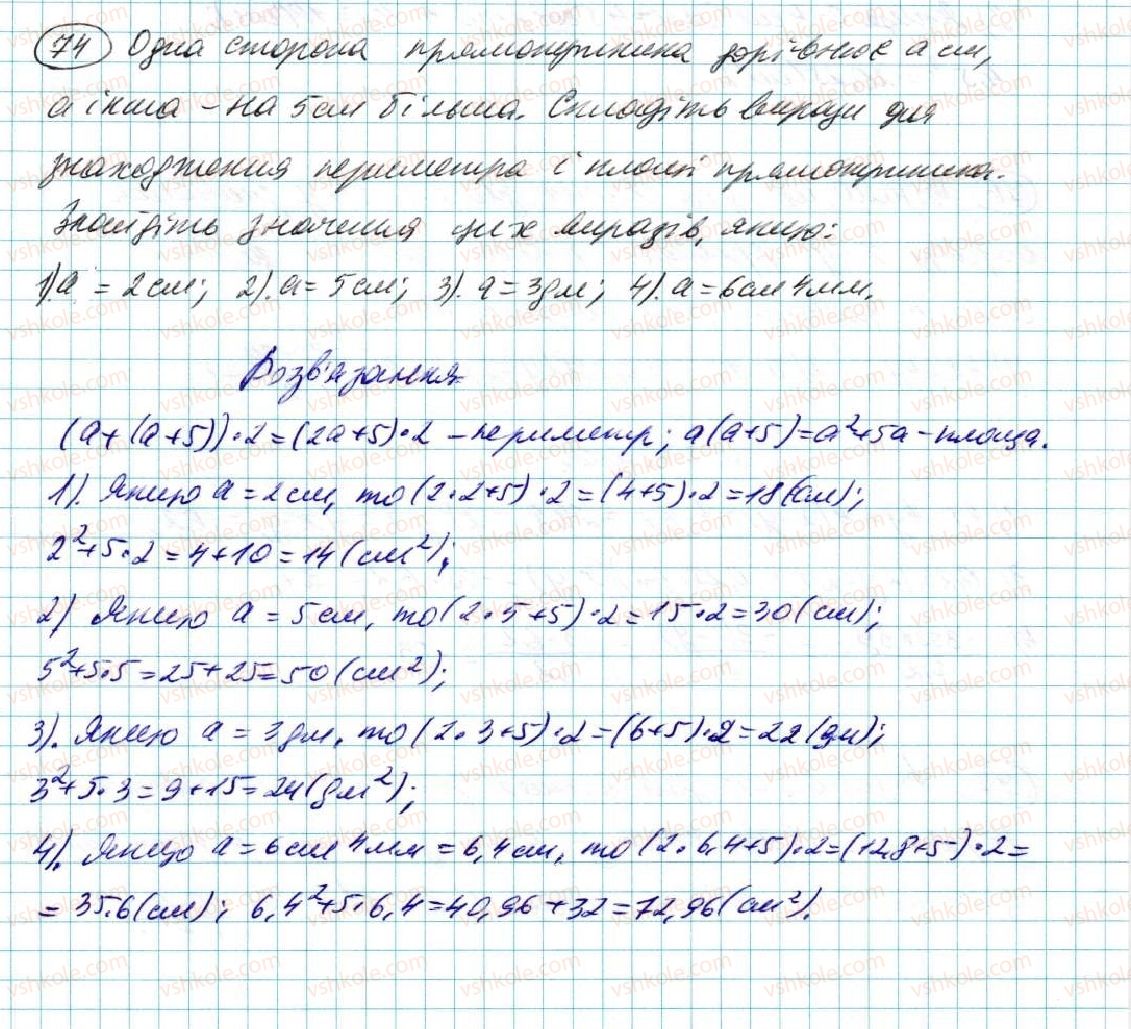 74 Одна сторона прямокутника дорівнює a см,
а інша - на 5см більша. Складіть вирази для
знаходження периметра і площі прямокутника.
Знайдіть значення цих виразів, якщо:
1) a = 2см; 2). a = 5см; 3). a = 3дм; 4). a = 6см 4мм.
Розв'язання
(a + (a + 5)) • 2 = (2a + 5) • 2 - периметр; a(a+5) = a² + 5a - площа.
1). Якщо a = 2см, то (2 • 2 + 5) • 2 = (4 + 5) • 2 = 18(см);
2² + 5 • 2 = 4 + 10 = 14 (см²);
2) Якщо a = 5см, то (2 • 5 + 5) • 2 = 15 • 2 = 30 (см);
5² + 5 • 5 = 25 + 25 = 50 (см²);
3). Якщо a = 3дм, то (2 • 3 + 5) • 2 = (6 + 5) • 2 = 22 (дм);
3² + 5 • 3 = 9 + 15 = 24 (дм²);
4). Якщо a = 6см 4мм = 6,4см, то (2 • 6,4 + 5) • 2 = (12,8 + 5) • 2 =
= 35,6 (см); 6,4² + 5 • 6,4 = 40,96 + 32 = 72,96 (см²).
vshkole.com